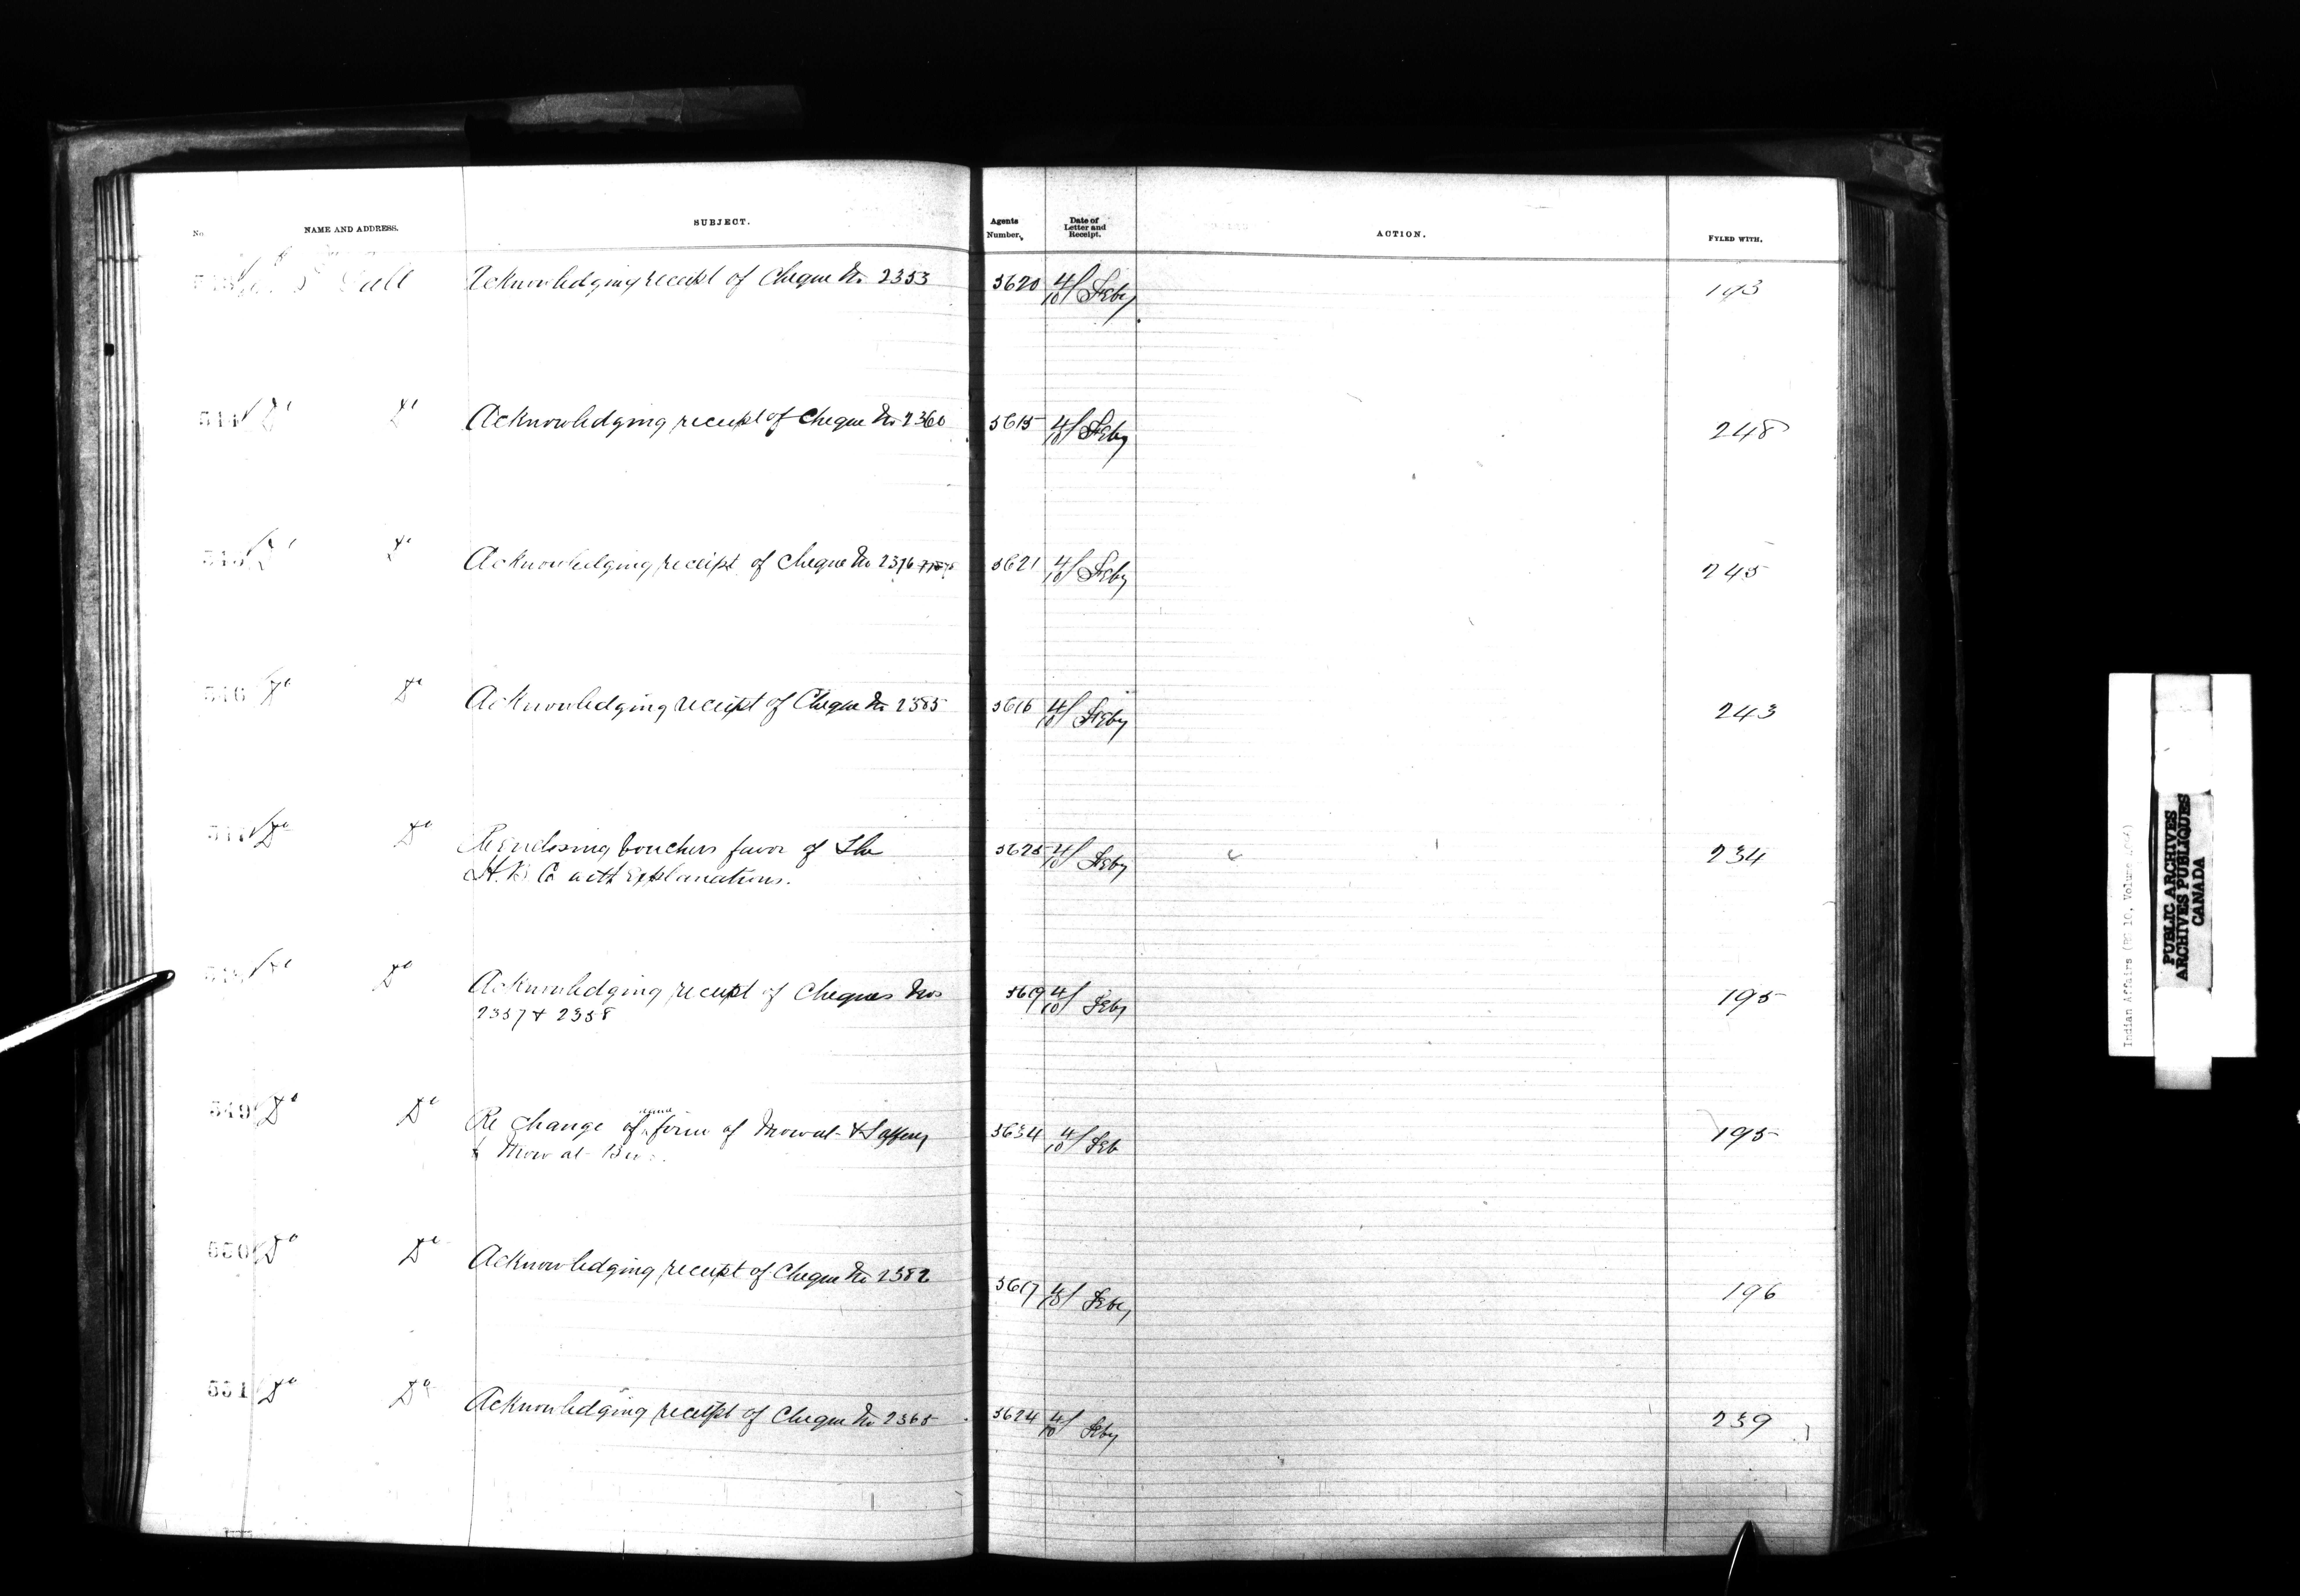 No. NAME AND ADDRESS. SUBJECT. Agents Number. Date of Letter and Receipt. ACTION. FYLED WITH.
Acknowledging receipt of Cheque No 2353 3620 4/10 Feby 193
544 Do Do Acknowledging receipt of Cheque No 2360 3615 4/10 Feby 248
545 Do Do Acknowledging receipt of Cheque No 2376 3621 4/10 Feby 245
546 Do Do Acknowledging receipt of Cheque No 2385 3616 4/10 Feby 243
Do Do Re enclosing vouchers favor of The 3625 4/10 Feby 234
H.B Co with Explanations.
Do Do Acknowledging receipt of Cheques Nos 3619 4/10 Feby 195
2357 & 2358
549 Do Do Re Change of name firm of Mowat & 3634 4/10 Feb 195
Mowat Bros.
550 Do Do Acknowledging receipt of Cheque No 2382 3617 4/10 Feby 196
551 Do Do Acknowledging receipt of Cheque No 2365 3624 4/10 Feby 239
Indian Affairs (RG 10, Volume
PUBLIC ARCHIVES
ARCHIVES PUBLIQUES
CANADA